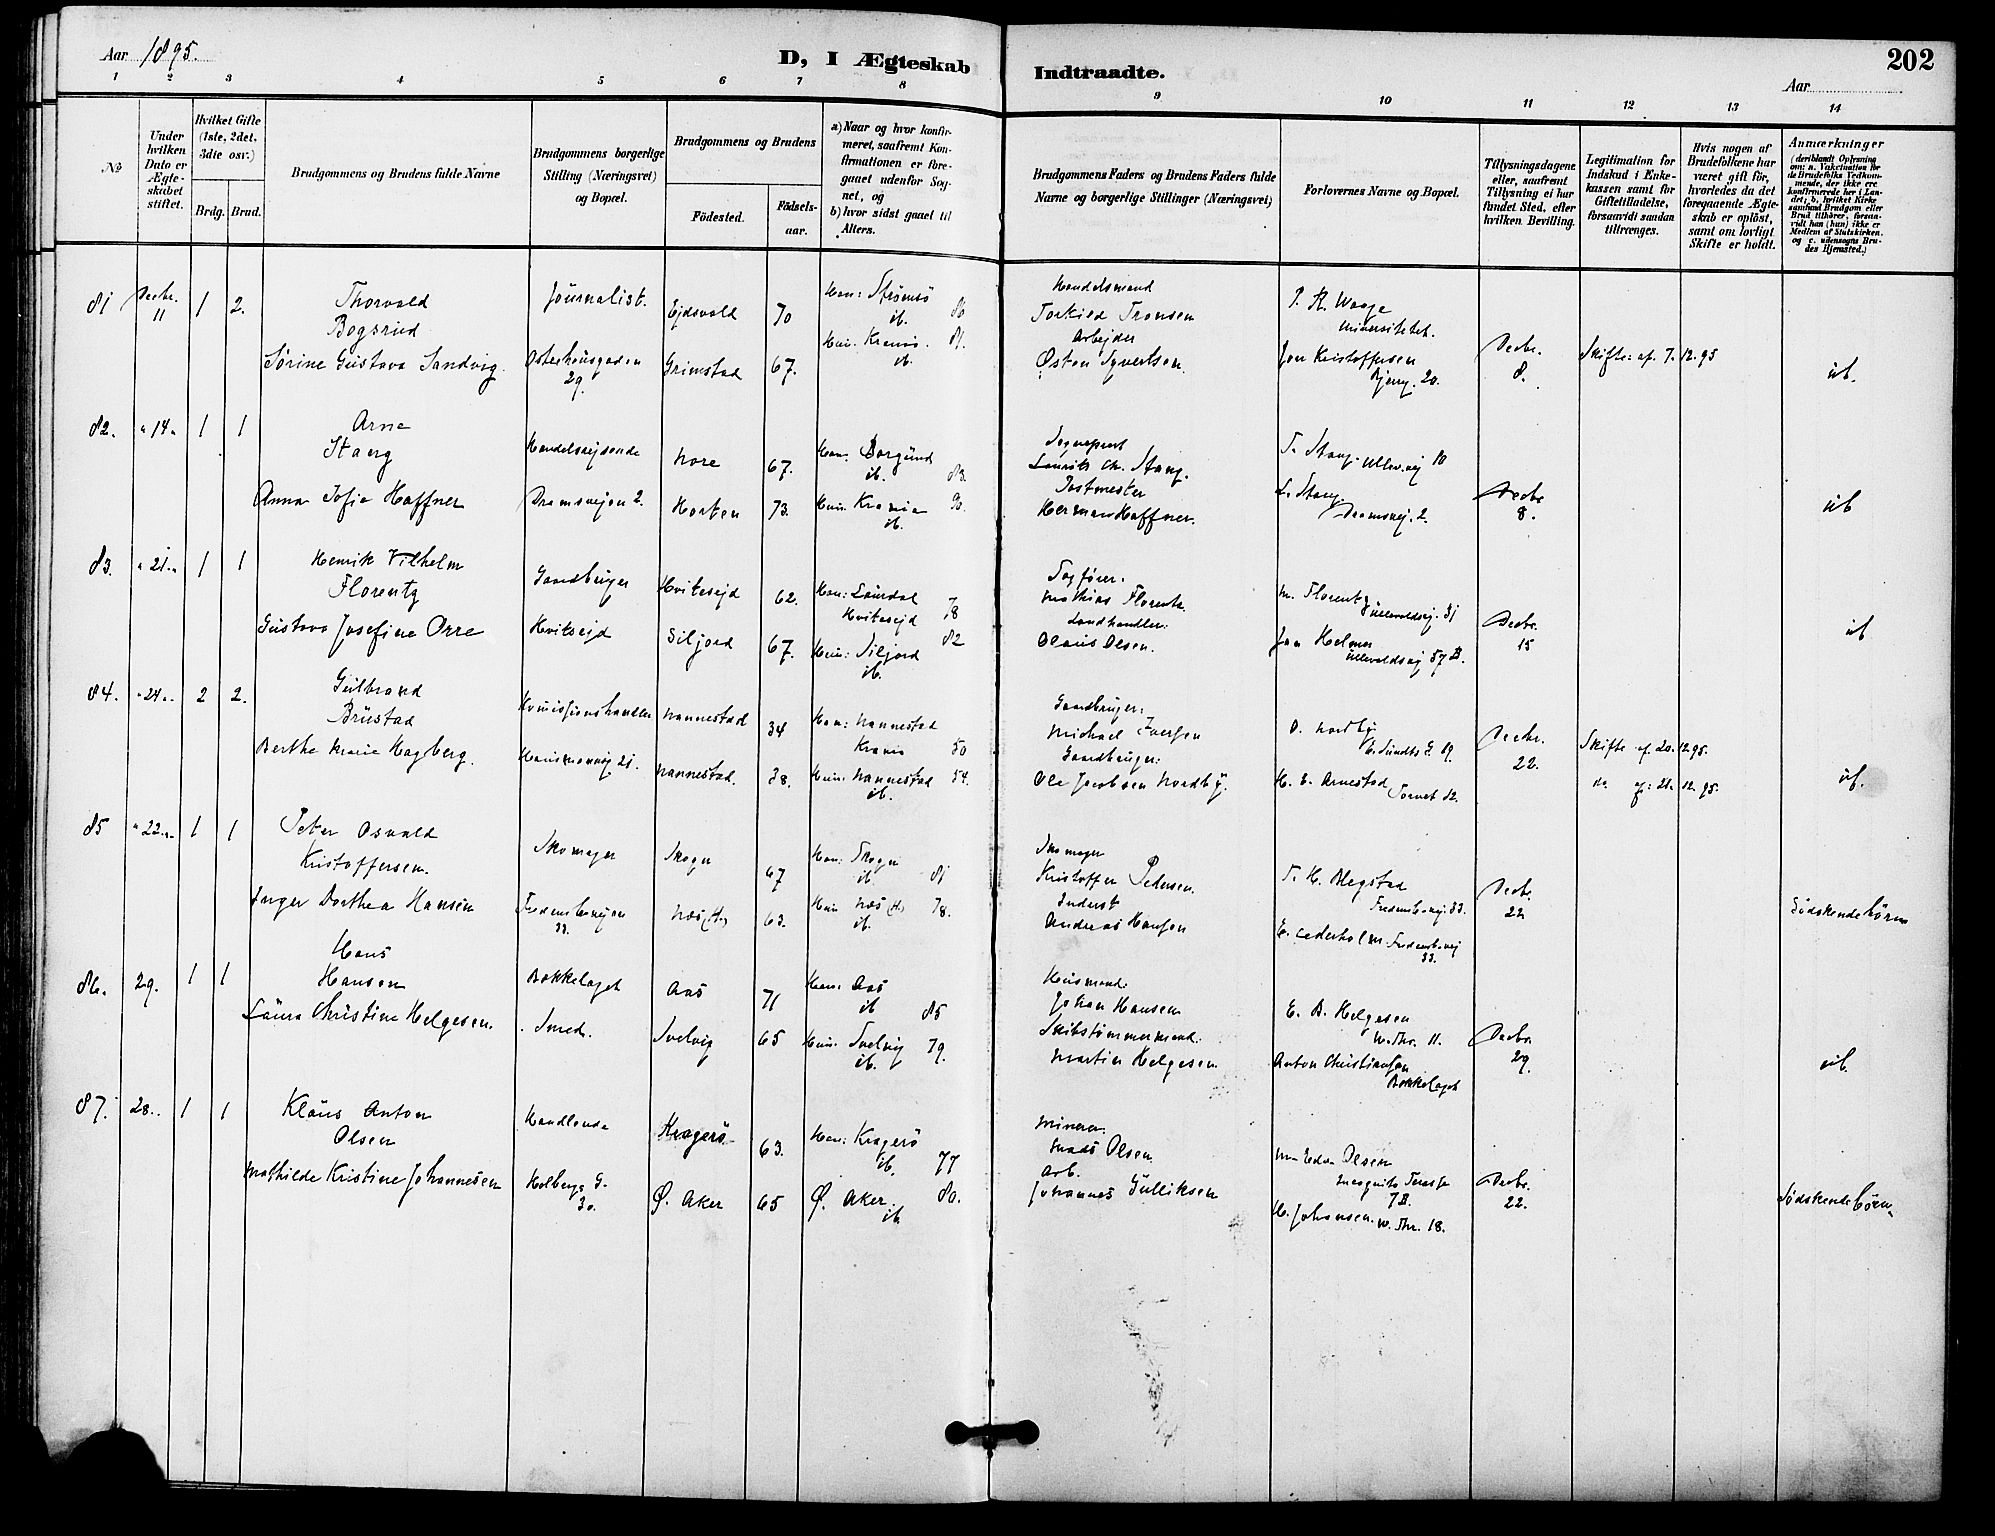 Aar 1895.
D, I Ægteskab
Indtraadte.
Aar
202
1 2 3 4 5 6 7 8 9 10 11 12 13 14
No
Under hvilken Dato er Ægteskabet stiftet.
Hvilket Gifte (1ste, 2det, 3dte osv.)
Brdg. Brud.
Brudgommens og Brudens fulde Navne
Brudgommens borgerlige Stilling (Næringsvei) og Bopæl.
Brudgommens og Brudens
Födested.
Födselsaar.
a) Naar og hvor konfirmeret, saafremt Konfirmationen er foregaaet udenfor Sognet, og
b) hvor sidst gaaet til Alters.
Brudgommens Faders og Brudens Faders fulde Navne og borgerlige Stillinger (Næringsvei)
Forlovernes Navne og Bopæl.
Tillysningsdagene eller, saafremt Tillysning ei har fundet Sted, efter hvilken Bevilling.
Legitimation for Indskud i Enkekassen samt for Giftetilladelse, forsaavidt saadan tiltrænges.
Hvis nogen af Brudefolkene har været gift før, hvorledes da det foregaaende Ægteskab er opløst, samt om lovligt Skifte er holdt.
Anmærkninger
(deriblandt Oplysning om: a. Vakcination for de Brudefolks Vedkommende, der ikke ere konfirmerede her i Landet; b. hvilket Kirkesamfund Brudgom eller Brud tilhører, forsaavidt han (hun) ikke er Medlem af Statskirken. og c. udensogns Brudes Hjemsted.)
81 Decbr. 11 1 2.
Thorvald
Bogsrud
Journalist.
Ejdsvold 70
Han: Strømsö ib. 86
Handelsmand
Torkild Tronsen
P. R. Waage
Universitetet.
Sörine Gustava Sandvig.
Osterhausgaden 29.
Grimstad 67.
Hun. Krania. ib. 81.
Arbejder
Østen Syvertsen.
Jon Kristoffersen
Bjerg. 20.
Decbr. 8.
Skifte: af. 7. 12. 95
ub.
82. " 14 " 1 1
Arne
Stang
Handelsrejsende
Nore 67.
Han: Borgund ib. 83.
Sogneprest
Laurits Ch. Stang.
T. Stang. Ullev.vej 10
Anna Sofie Haffner
Dramsvejen 2.
Horten 73.
Hun. Krania ib. 90.
Postmester
Herman Haffner.
L. Stang.
Dramsvej. 2.
Decbr 8.
ub
83. " 21. " 1 1
Henrik Vilhelm
Florentz
Gaardbruger
Hvitesejd 62.
Han: Laurdal
Hvitesejd 78
Sagfører.
Mathias Florentz
M. Florentz
Ullevoldsvej. 31
Gustava Josefine Orre
Hvitesejd
Siljord 67.
Hun: Siljord ib. 82
Landhandler.
Olaus Olsen.
Jon Helmer
Ullevoldsvej 57 B.
Decbr. 15
ub
84. " 24 ". 2 2.
Gulbrand
Brustad
Komissionshandler
Nannestad 34
Han: Nannestad
Krania 50
Gaardbruger:
Michael Iversen
O. Nordby
E. Sundts G. 19.
Berthe Marie Hagberg.
Hausmannsg 21.
Nannestad. 38.
Hun: Nannestad ib. 54.
Gaardbruger:
Ole Jacobsen Nordby.
H. E. Arnestad Torvet 12.
Decbr. 22.
Skifte af. 20. 12. 95.
Do. af: 21. 12. 95.
ub.
85 " 22 ". 1 1
Peter Osvald
Kristoffersen.
Skomager
Skoger 67
Han: Skoger ib. 81
Skomager
Kristoffer Pedersen.
T. H. Aegstad
Fredensborgvej. 33.
Inger Dorthea Hansen
Fredensborgvejen 33.
Næs (H.) 63.
Hun Næs (H) ib. 78.
Inderst
Andreas Hansen
E. Cederholm. Fredensb.vej 33.
Decbr. 22
Södskendebörn
86. 29. 1 1
Hans
Hansen
Bækkelaget
Aas 71
Han: Aas ib 85
Husmand.
Johan Hansen
E. B. Helgesen
W. Thr. 11.
Laura Christine Helgesen.
Smed.
Svelvig 65
Hun: Svelvig ib. 79.
Skibstømmermand.
Martin Helgesen
Anton Christiansen
Bækkelaget
Decbr. 29.
ub.
87. 28.. 1 1
Klaus Anton
Olsen
Handlende
Kragerö 63.
Han: Kragerö ib. 77
Minerer.
Mads Olsen.
M. Edv. Olsen
Incognito Terasse 7 B.
Mathilde Kristine Johannesen
Holbergs G. 30.
Ø. Aker 65
Ø. Aker. ib 80.
Arb.
Johannes Gulliksen
H. Johansen. W. Thr. 18.
Decbr. 22.
Södskendebörn.